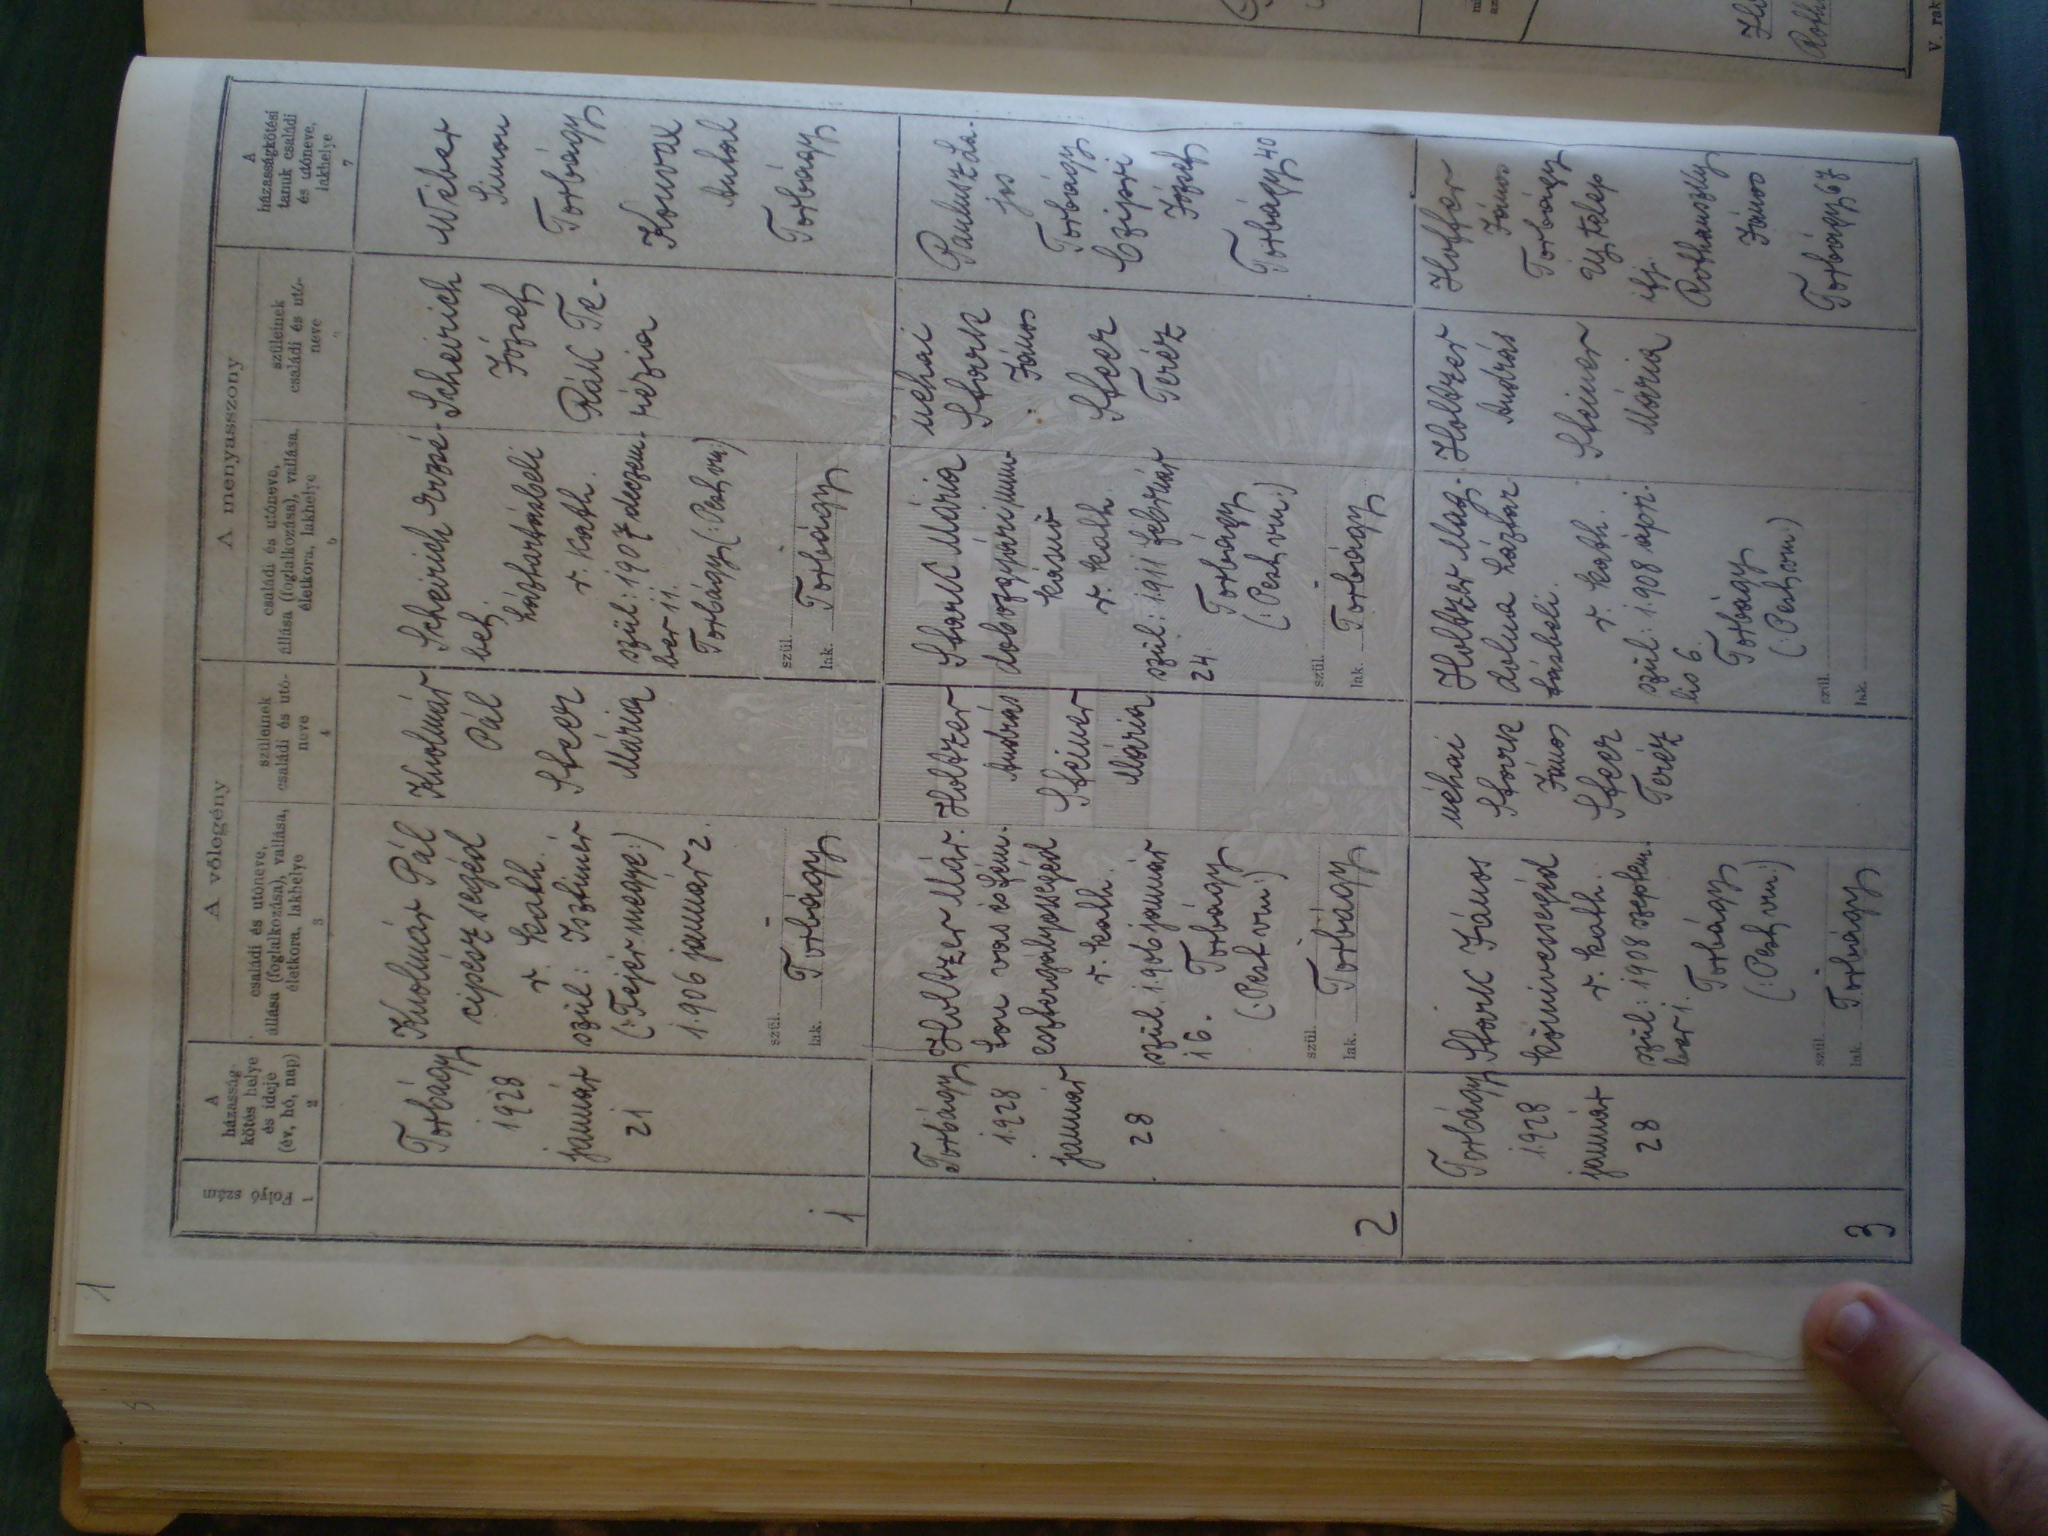 1
A vőlegény
A menyasszony
Folyó szám
1
A
házasság-
kötés helye
és ideje
(év, hó, nap)
2
családi és utóneve,
állása (foglalkozása), vallása,
életkora, lakhelye
3
szüleinek
családi és utó-
neve
4
családi és utóneve,
állása (foglalkozása), vallása,
életkora, lakhelye
5
szüleinek
családi és utó-
neve
A
házasságkötési
tanuk családi
és utóneve,
lakhelye
7
1
Torbágy
1928
január
21
Knolmár Pál
cipészsegéd
r. kath.
szül: Isztimér
(: Fejér megye:)
1906 január 2.
szül.
lak. Torbágy
Knolmár
Pál
Steer
Mária
Scheirich Erzsé-
bet
háztartásbeli
r. kath.
szül: 1907 deczem-
ber 11.
Torbágy (: Pest vm:)
szül.
lak. Torbágy
Scheirich
József
Rák Te-
rézia
Wéber
Simon
Torbágy
Antal
Torbágy
2
Torbágy
1928
január
28
Holtzer Már-
ton vas és fém-
esztergályossegéd
r. kath.
szül: 1906 január
16.
Torbágy
(: Pest vm:)
szül.
lak. Torbágy
Holtzer
András
Steiner
Mária
Stark Mária
dobozgyári mun-
kásnő
r. kath.
szül: 1911 február
24.
Torbágy
(: Pest vm:)
szül.
lak. Torbágy
néhai
Stark
János
Steer
Teréz
La-
jos
Torbágy
József
Torbágy 40
3
Torbágy
1928
január
28
Stark János
kőművessegéd
r. kath.
szül: 1908 szeptem-
ber 1.
Torbágy
(: Pest vm:)
szül.
lak. Torbágy
néhai
Stark
János
Steer
Teréz
Holtzer Mag-
dolna háztar-
tásbeli
r. kath.
szül: 1908 ápri-
lis 6.
Torbágy
(: Pest vm:)
szül.
lak.
Holtzer
András
Steiner
Mária
Hoffer
János
Torbágy
Ujtelep
ifj.
Rothanszky
János
Torbágy 67
V. rak